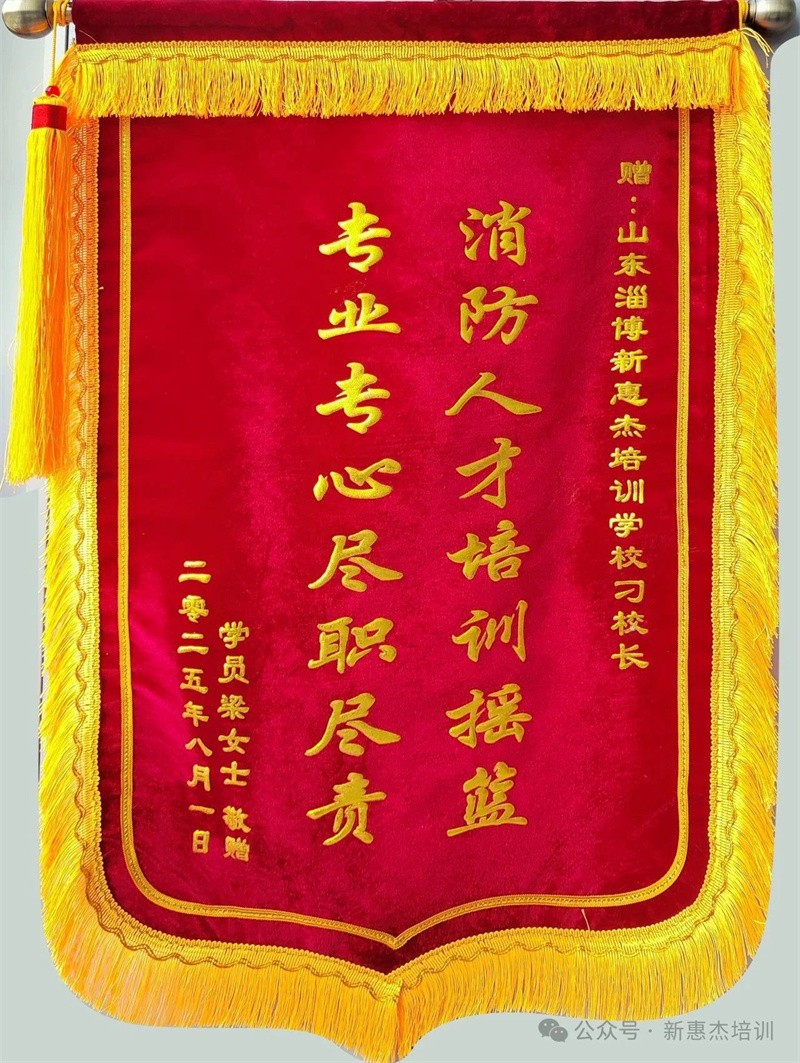 赠：山东淄博新惠杰培训学校刁校长
消防人才培训摇篮
专业专心尽职尽责
学员梁女士 敬赠
二零二五年八月一日
公众号·新惠杰培训